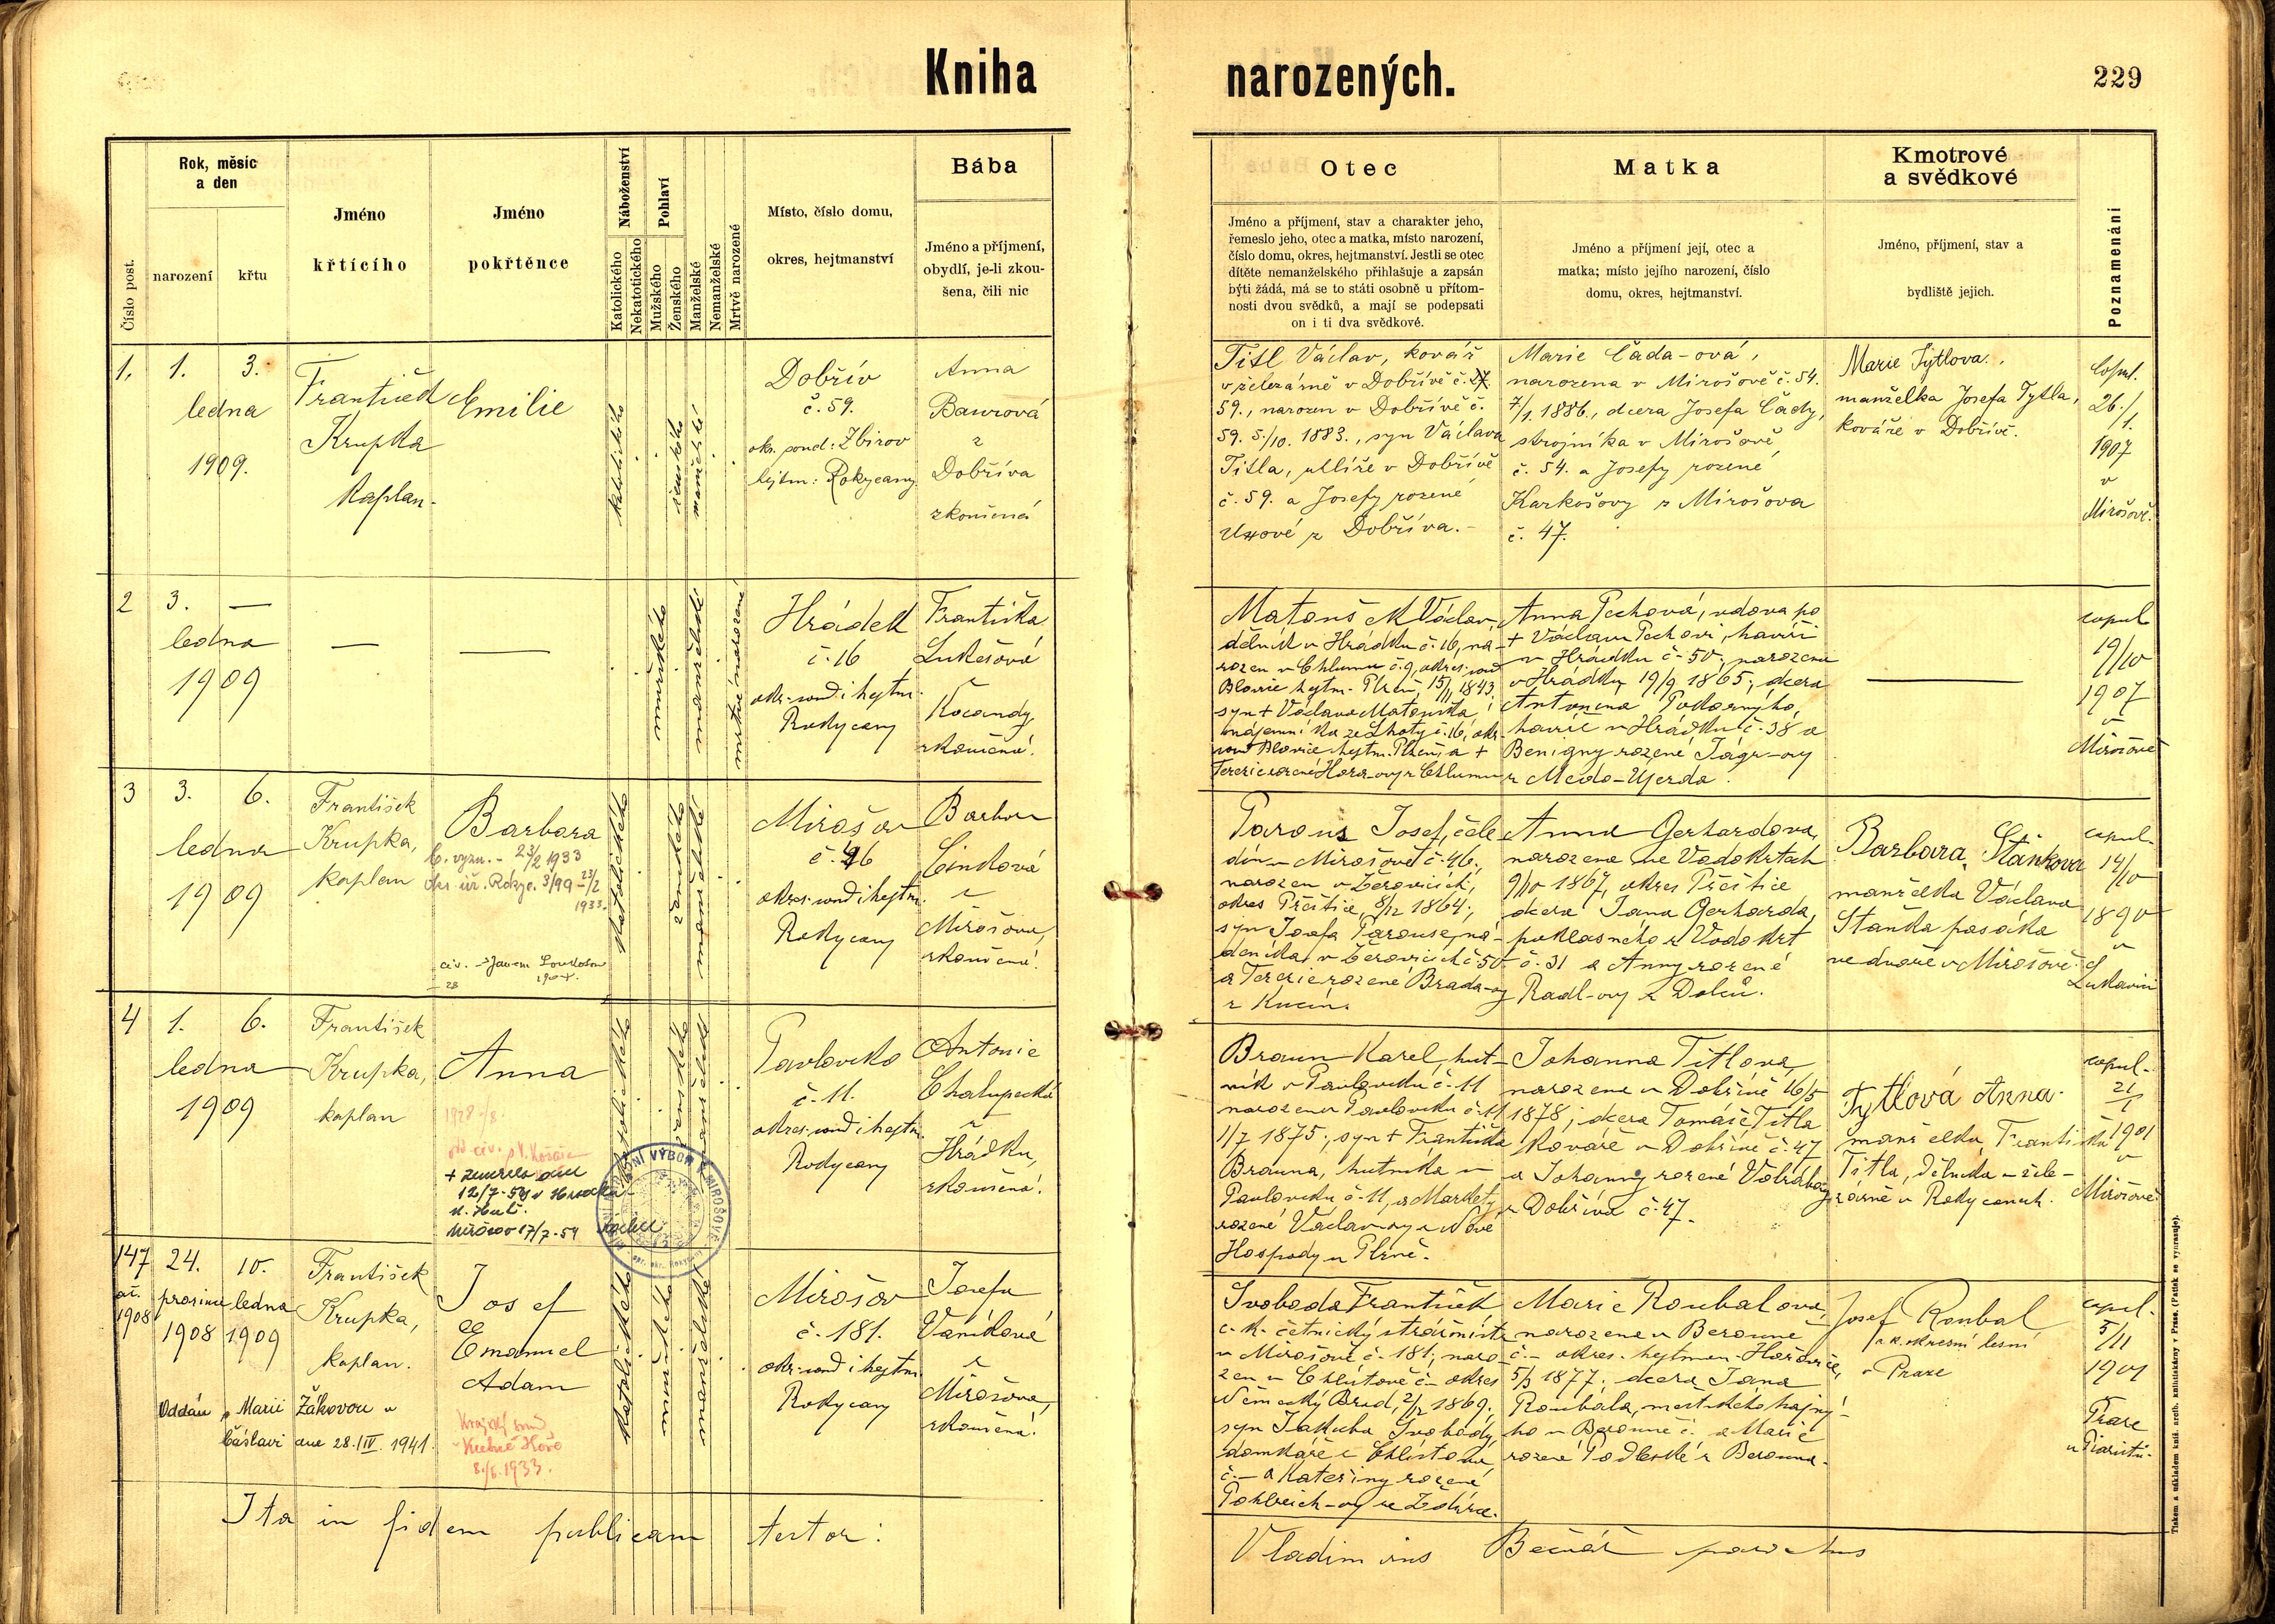 Kniha narozených.
229
Číslo post.
Rok, měsíc
a den
narození
křtu
Jméno
křtícího
Jméno
pokřtěnce
Náboženství
Katolického
Nekatotického
Pohlaví
Mužského
Ženského
Manželské
Nemanželské
Mrtvě narozené
Místo, číslo domu,
okres, hejtmanství
Bába
Jméno a příjmení,
obydlí, je-li zkou-
šena, čili nic
Otec
Jméno a příjmení, stav a charakter jeho,
řemeslo jeho, otec a matka, místo narození,
číslo domu, okres, hejtmanství. Jestli se otec
dítěte nemanželského přihlašuje a zapsán
býti žádá, má se to státi osobně u přítom-
nosti dvou svědků, a mají se podepsati
on i ti dva svědkové.
Matka
Jméno a příjmení její, otec a
matka; místo jejího narození, číslo
domu, okres, hejtmanství.
Kmotrové
a svědkové
Jméno, příjmení, stav a
bydliště jejich.
Poznamenání
1.
1.
ledna
1909.
3.
František
Krupka
Kaplan.
Emilie
katolického
ženského
manželské
Dobřív
č. 59.
okr. soud: Zbirov
hejtm: Rokycany
Anna
Baurová
z
Dobříva
zkoušená
Titl Václav, kovář
v železárně v Dobřívě č. 27.
59., narozen v Dobřívě č.
59. 5./10. 1883., syn Václava
Titla, uhlíře v Dobřívě
č. 59. a Josefy rozené
z Dobříva.
Marie Čada-ová,
narozena v Mirošově č. 54.
7/1. 1886., dcera Josefa Čady,
strojníka v Mirošově
č. 54. a Josefy rozené
Karkošovy z Mirošova
č. 47.
Marie Tytlova,
manželka Josefa Tytla,
kováře v Dobřívě.
Copul.
26./
1.
1907
v
Mirošově.
2
3.
ledna
1909
—
—
—
mužského
manželské
mrtvě narozené
Hrádek
č. 16
okr. soud i hejtm.
Rokycany
Františka
Lukešová
z
Kocandy,
zkoušená.
Matouš Václav,
dělník v Hrádku č. 16, na-
rozen v Chlumu č. 9, okres. soud
Blovice hejtm. Plzeň, 15/11 1843.
syn + Václava Matouška,
nájemníka ze Lhoty č. 16, okr.
soud Blovice hejtm. Plzeň, a +
Terezie rozené Hora-ovy z Chlumu
Anna Pechová, vdova po
+ Václavu Pechovi, havíři
v Hrádku č. 50, narozena
v Hrádku 19/9 1865, dcera
Antonína Pokorného,
havíře v Hrádku č. 38 a
Benigny rozené Jágr-ovy
z Medo-Újezda.
—
copul
19/10
1907
v
Mirošově
3
3.
ledna
1909
6.
František
Krupka,
kaplan
Barbora
B. vyzn. - 23/2 1933
okr. úř. Rokyc. 3/99 - 23/2
1933.
civ. Janem
28
katolického
ženského
manželské
Mirošov
č. 46
okres. soud i hejtm.
Rokycany
Barbora
Cindlová
z
Mirošova,
zkoušená.
Parous Josef, čele-
dín v Mirošově č. 46,
narozen v Žerovicích,
okres Přeštice 8/12 1864,
syn Josefa Parouse, ná-
deníka v Žerovicích č. 50
a Terezie rozené Brada-ovy
z Kucín.
Anna Gerhardova,
narozena ve Vodokrtech
9/10 1867, okres Přeštice
dcera Jana Gerharda,
poklasného z Vodokrt
č. 31 a Anny rozené
Radl-ovy z Dolců.
Barbara Staňkova
manželka Václava
Staňka pasáka
ve dvoře v Mirošově.
copul.
14/10
1890
v
Lukavici
4
1.
ledna
1909
6.
František
Krupka,
kaplan
Anna
1928
+ zemřela dne
12/7-54
Mirošov 17/7-54
katolického
ženského
manželské
Pavlovsko
č. 11.
okres. soud i hejtm.
Rokycany
Antonie
Chalupecká
z
Hrádku,
zkoušená.
Braun Karel, hut-
ník v Pavlovsku č. 11
narozen v Pavlovsku č. 11
1/7 1875, syn + Františka
Brauna, hutníka v
Pavlovsku č. 11, a Markéty
rozené Václav-ovy z Nové
Hospody u Plzně.
Johanna Titlova,
narozena v Dobřívě 16/5
1878, dcera Tomáše Titla
kováře v Dobřívě č. 47
a Johanny rozené
z Dobříva č. 47.
Tytlová Anna.
manželka Františka
Titla, dělníka v žele-
zárně v Rokycanech.
copul.
21
1
1901
v
Mirošově.
147
ař.
1908
24.
prosince
1908
10.
ledna
1909
František
Krupka,
kaplan.
Josef
Emanuel
Adam
Oddán s Marií Žákovou v
Čáslavi dne 28./IV. 1941.
Krajský soud
v Kutné Hoře
8./6. 1933.
katolického
mužského
manželské
Mirošov
č. 181.
okr. soud i hejtm.
Rokycany
Josefa
Vaníková
z
Mirošova,
zkoušená.
Svoboda František
c. k. četnický strážmistr
v Mirošově č. 181, naro-
zen v Chlístově č - okres
Německý Brod, 2/12 1869.
syn Jakuba Svobody
domkáře z Chlístova
č. - a Kateřiny rozené
Pohlreich-ovy ze Ždírce.
Marie Roubalova,
narozena v Berouně
č. - okres. hejtman. Hořovice,
5/3 1877. dcera Jana
Roubala, městského hajné-
ho v Berouně č. a Marie
rozené Podleské z Berouna.
Josef Roubal
v Praze
copul.
5/11
1907
Praze
u Piaristů.
Ita in fidem publicam testor:
Vladimirus Bečvář parochus
Tiskem a nákladem kníž. arcib. knihtiskárny v Praze. (Patisk se vyhrazuje).